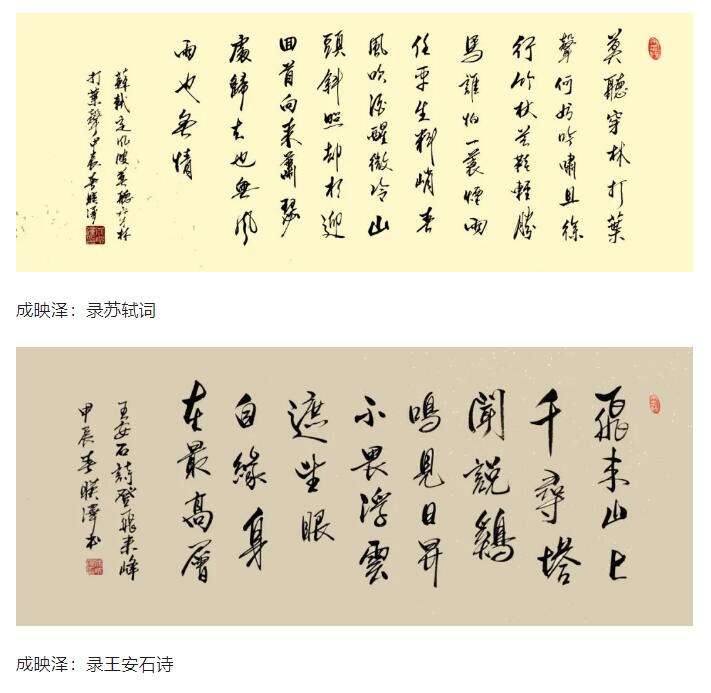 莫聽穿林打葉
聲何妨吟嘯且徐
行竹杖芒鞋輕勝
馬誰怕一蓑煙雨
任平生料峭春
風吹酒醒微冷山
頭斜照却相迎
回首向來蕭瑟
處歸去也無風
雨也無情
蘇軾定風波莫聽穿林
打葉聲甲辰春暎澤
成映泽：录苏轼词
飛來山上
千尋塔
聞說鷄
鳴見日昇
不畏浮雲
遮望眼
自緣身
在最高層
王安石詩登飛來峰
甲辰春暎澤书
成映泽：录王安石诗